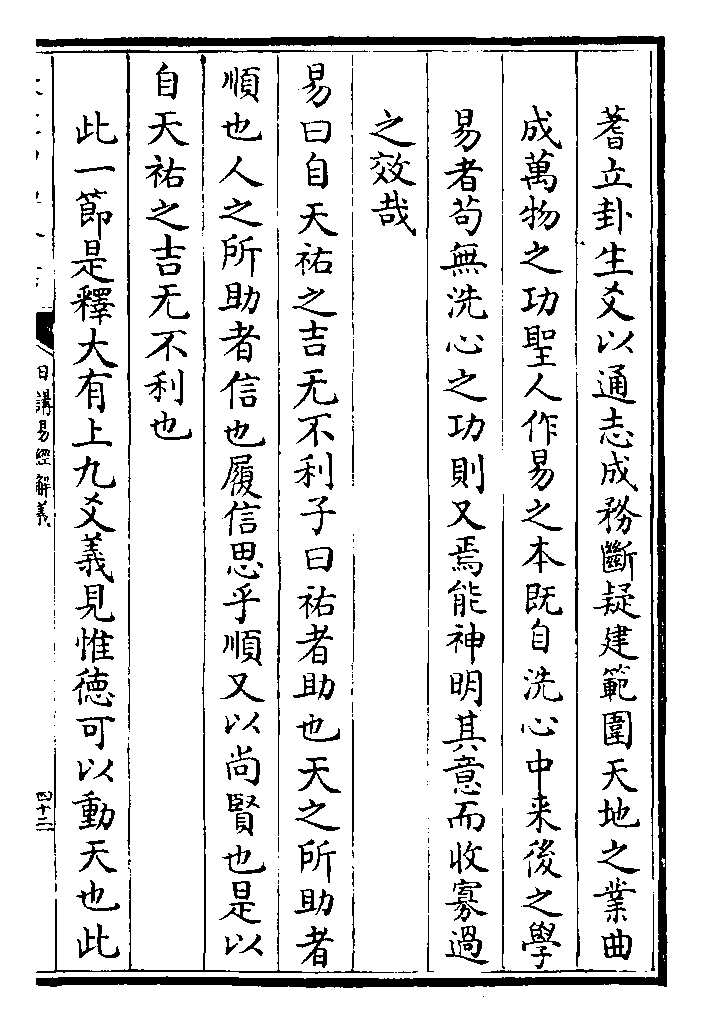 蓍立卦生爻以通志成務斷疑建範圍天地之業曲
成萬物之功聖人作易之本既自洗心中来後之學
易者苟無洗心之功則又焉能神明其意而收寡過
之效哉
易曰自天祐之吉无不利子曰祐者助也天之所助者
順也人之所助者信也履信思乎順又以尚賢也是以
自天祐之吉无不利也
此一節是釋大有上九爻義見惟德可以動天也此
日講易經解義
四十三